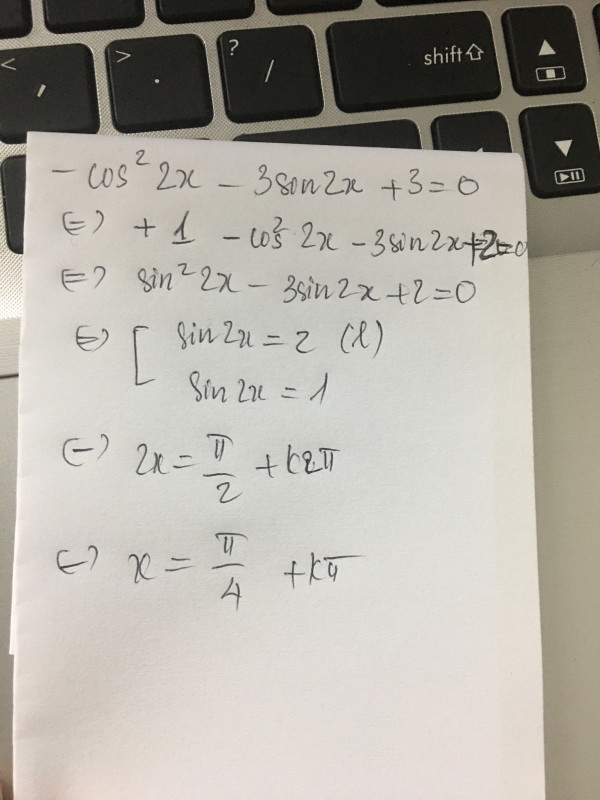 < ,
> .
? /
shift
- cos² 2x - 3sin2x + 3 = 0
⇔ + 1 - cos² 2x - 3sin2x + 2 = 0
⇔ sin² 2x - 3sin2x + 2 = 0
⇔ [ sin2x = 2 (l)
sin2x = 1
⇔ 2x = π/2 + k2π
⇔ x = π/4 + kπ